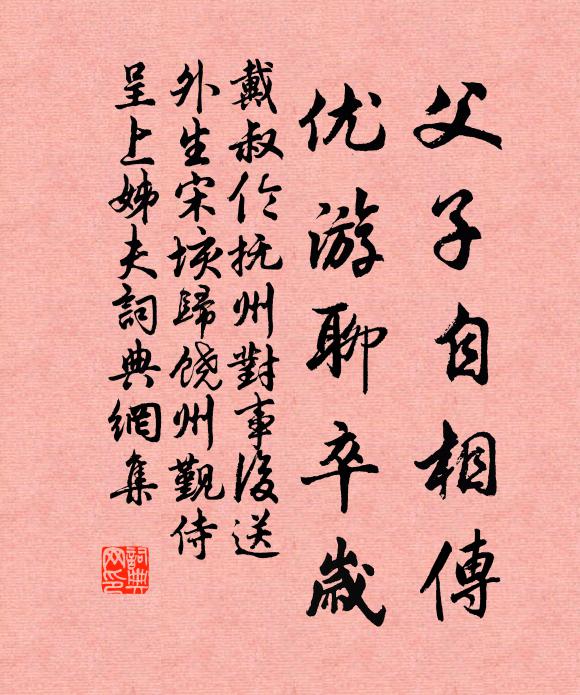 父子自相傳
优游聊卒歲
戴叔伦抚州對事後送
外生宋垓歸饶州觐侍
呈上姊夫詞典網集
詞典
网印